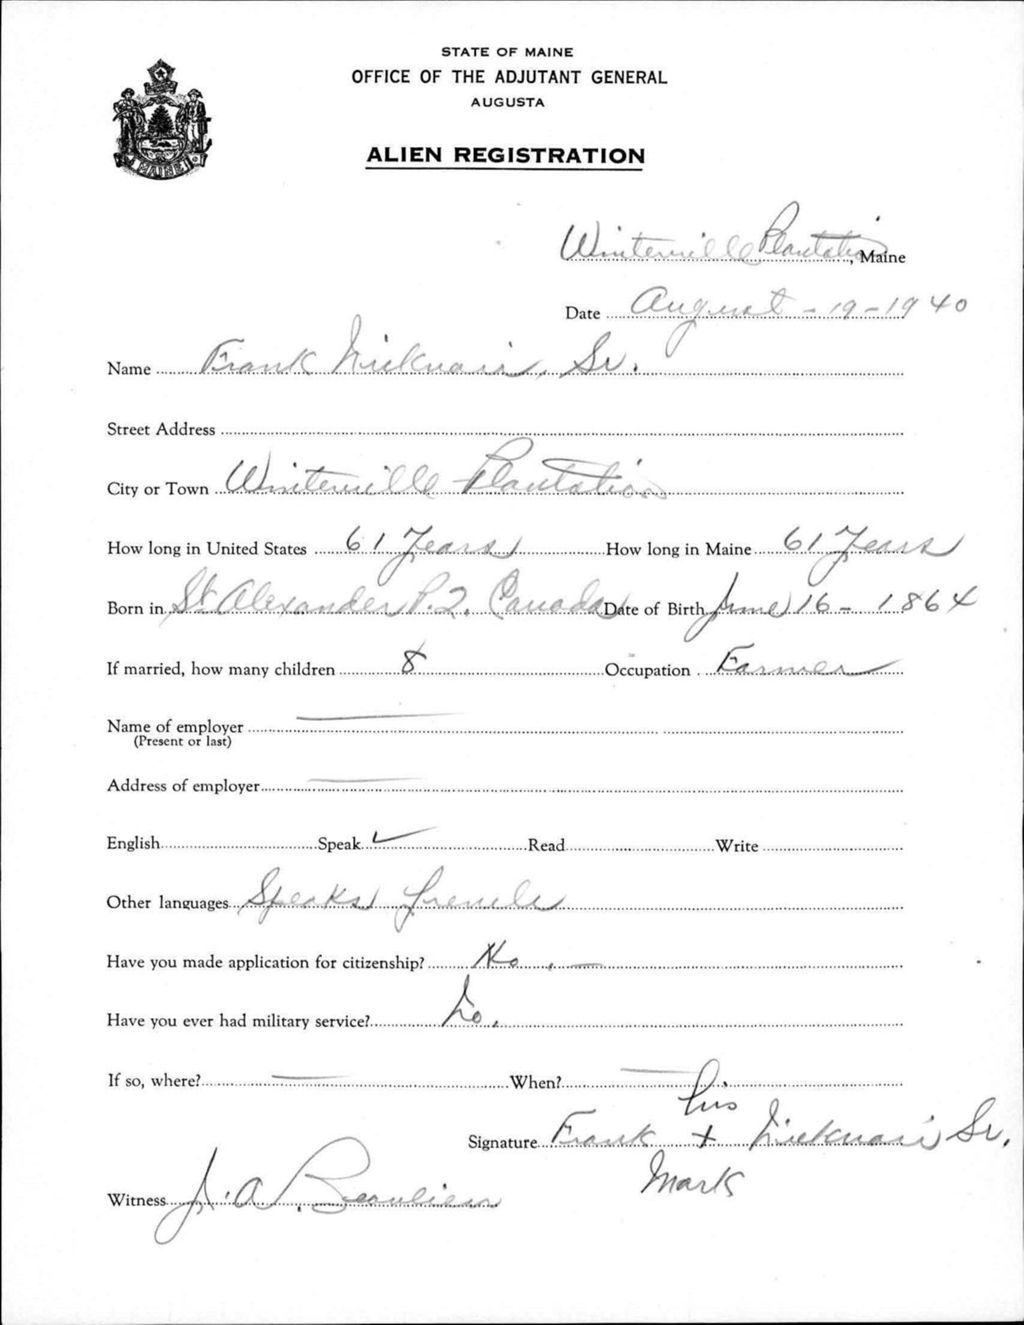 STATE OF MAINE
OFFICE OF THE ADJUTANT GENERAL
AUGUSTA
ALIEN REGISTRATION
MAINE
Winterville Plantation, Maine
Date August - 19 - 1940
Name Frank Nicknair, Sr.
Street Address
City or Town Winterville Plantation
How long in United States 61 Years How long in Maine 61 Years
Born in St Alexander P.Q. Canada Date of Birth June 16 - 1864
If married, how many children 8 Occupation Farmer
Name of employer
(Present or last)
Address of employer
English Speak ✓ Read Write
Other languages Speaks french
Have you made application for citizenship? No. -
Have you ever had military service? No.
If so, where? When?
his
Signature Frank + Nicknair Sr.
Mark
Witness J. A. Beaulieu